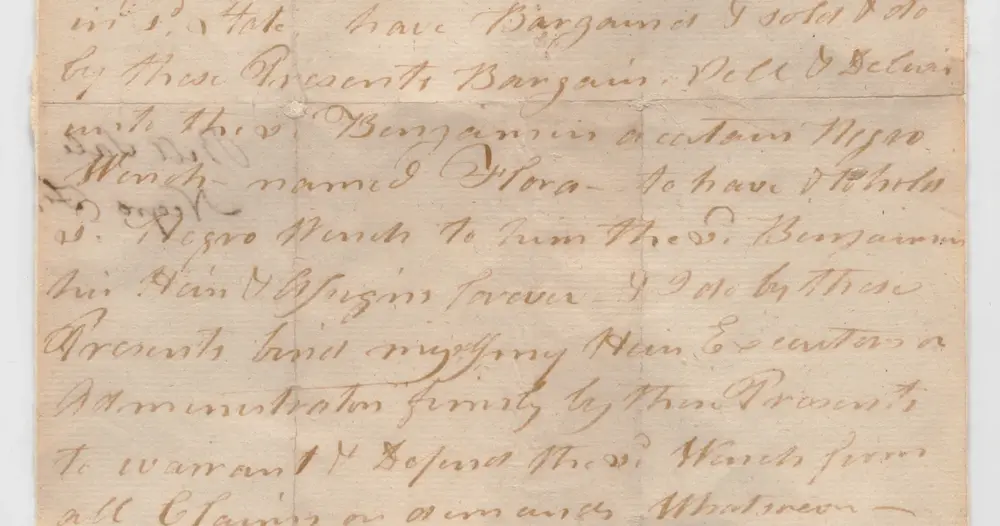 in sd. State have Bargaind & sold & do
by these Presents Bargain, Sell & Deliver
unto the sd. Benjamin a certain Negro
Wench named Flora – to have & to hold
sd. Negro Wench to him the sd. Benjamin
his Heirs & Assigns forever – & I do by these
Presents bind myself my Heirs Executors or
Administrators firmly by these Presents
to warrant & Defend the sd. Wench from
all Claims or demands Whatsoever –